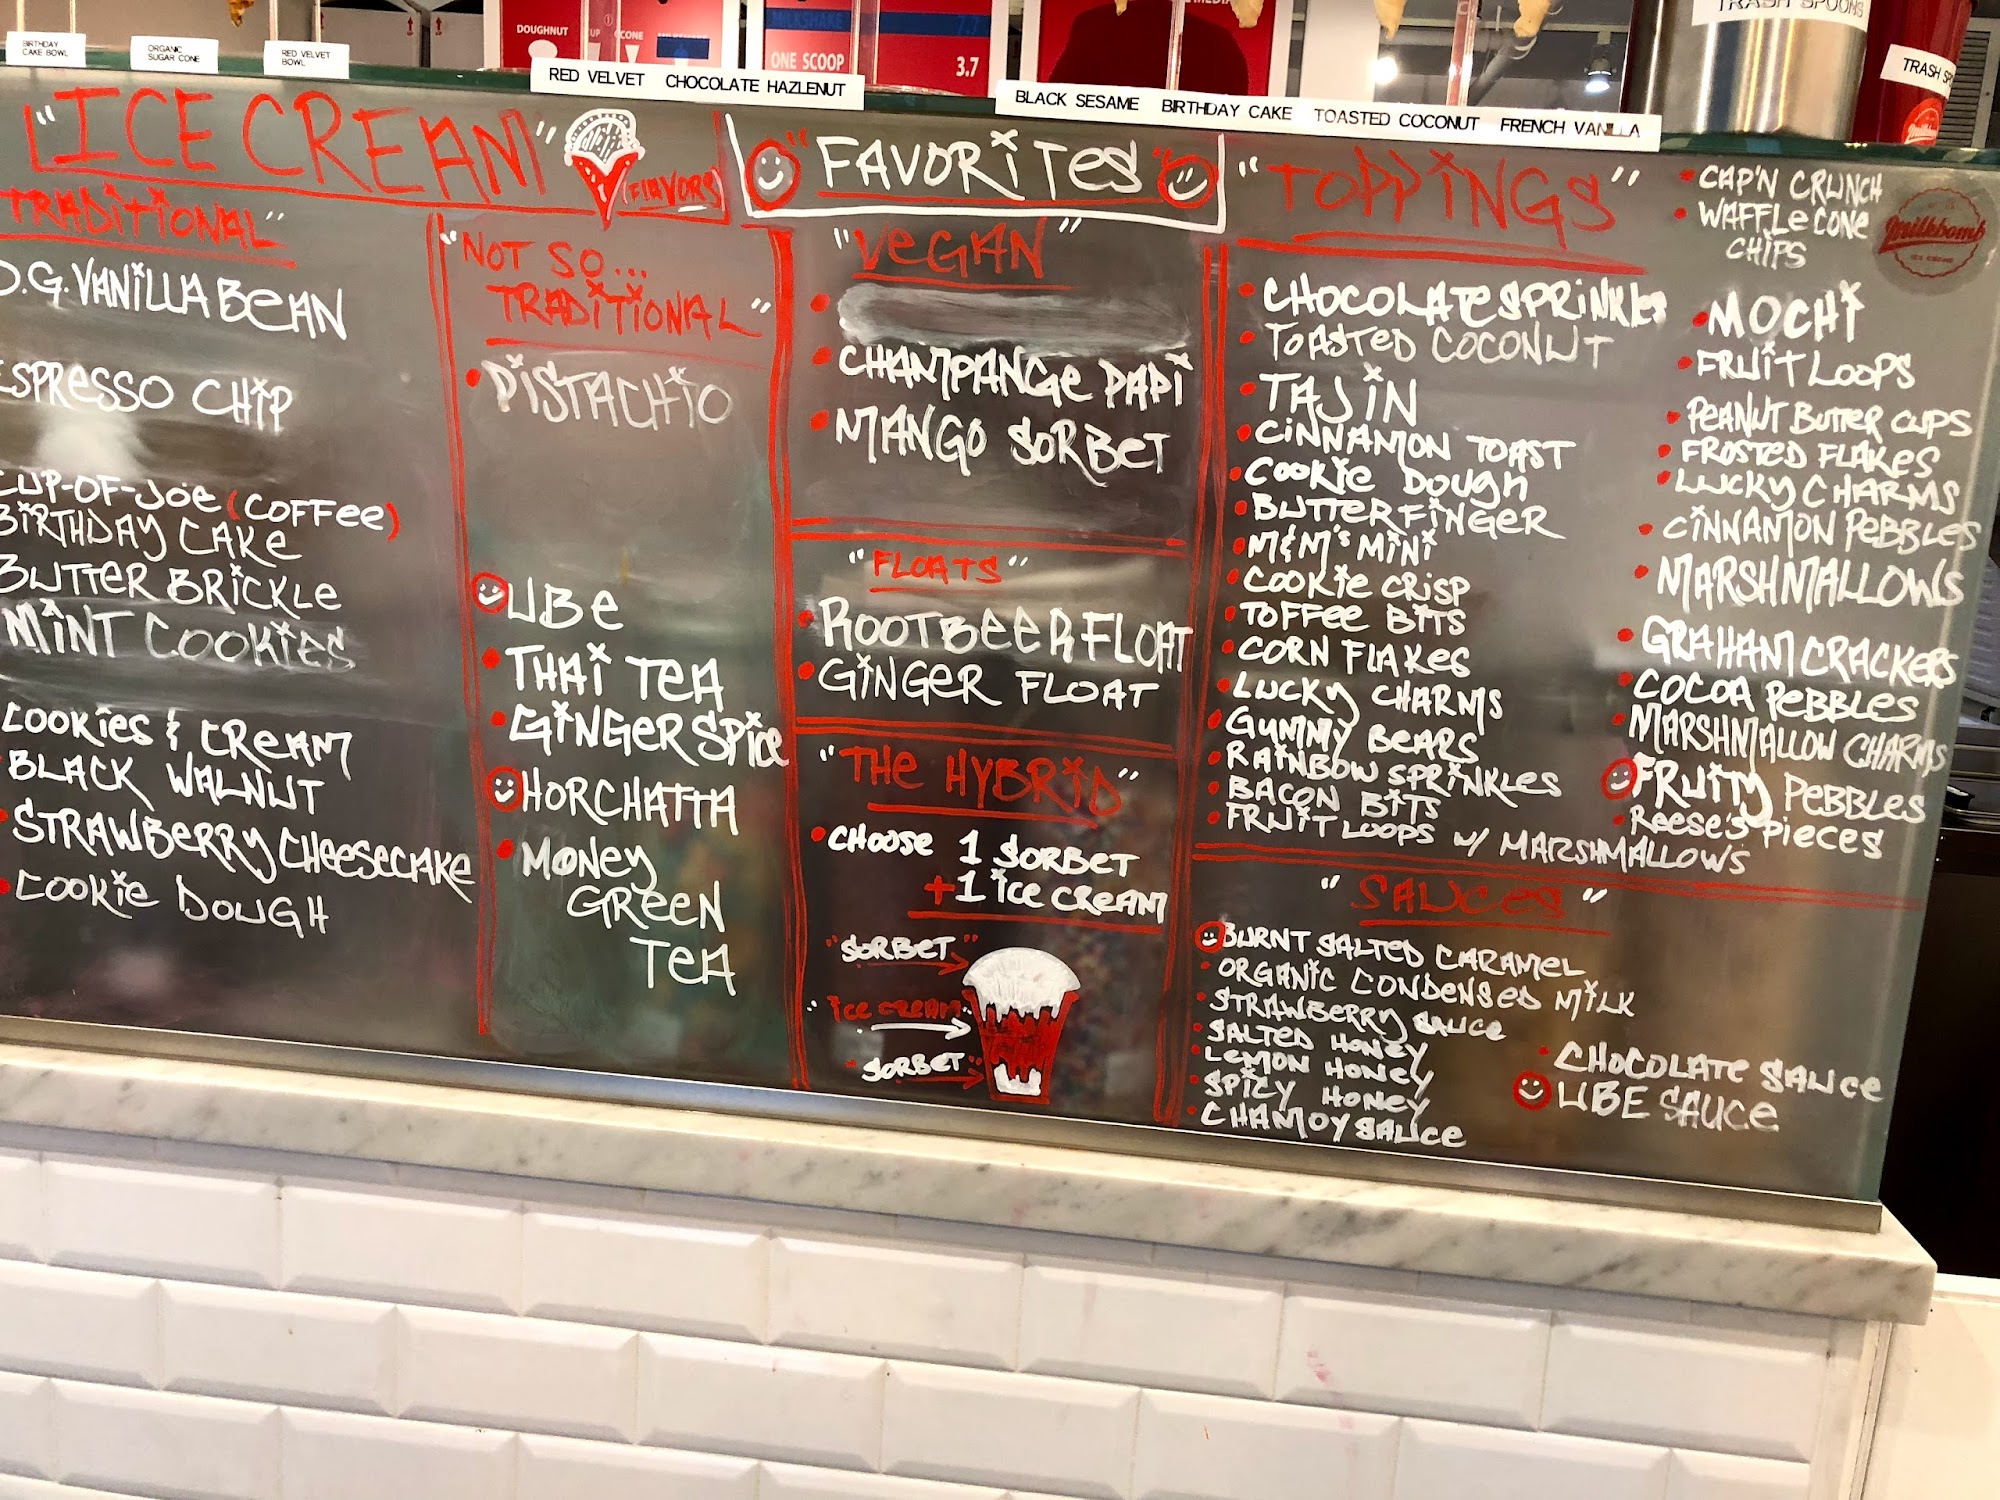 BIRTHDAY
CAKE BOWL
ORGANIC
SUGAR CONE
RED VELVET
BOWL
DOUGHNUT
CONE
MILKSHAKE 7.7
ONE SCOOP 3.7
RED VELVET CHOCOLATE HAZLENUT
BLACK SESAME BIRTHDAY CAKE TOASTED COCONUT FRENCH VANILLA
TRASH SPOONS
TRASH
"ICE CREAM"
FLAVORS
TRADITIONAL"
O.G. VANILLA BEAN
ESPRESSO CHIP
CUP-OF-JOE (COFFEE)
BIRTHDAY CAKE
BUTTER BRICKLE
MINT COOKIES
COOKIES & CREAM
BLACK WALNUT
• STRAWBERRY CHEESECAKE
• COOKIE DOUGH
"NOT SO...
TRADITIONAL"
• PISTACHIO
UBE
• THAI TEA
• GINGER SPICE
HORCHATTA
• MONEY
GREEN
TEA
"FAVORITES"
"VEGAN"
• CHAMPANGE PAPI
• MANGO SORBET
"FLOATS"
• ROOTBEER FLOAT
• GINGER FLOAT
"THE HYBRID"
• CHOOSE 1 SORBET
+1 ICE CREAM
"SORBET"
"ICE CREAM"
"SORBET"
"TOPPINGS"
• CHOCOLATE SPRINKLES
• TOASTED COCONUT
• TAJIN
• CINNAMON TOAST
• COOKIE DOUGH
• BUTTERFINGER
• M&M's MINI
• COOKIE CRISP
• TOFFEE BITS
• CORN FLAKES
• LUCKY CHARMS
• GUMMY BEARS
• RAINBOW SPRINKLES
• BACON BITS
• FRUIT LOOPS W/ MARSHMALLOWS
• CAP'N CRUNCH
• WAFFLE CONE
CHIPS
• MOCHI
• FRUIT LOOPS
• PEANUT BUTTER CUPS
• FROSTED FLAKES
• LUCKY CHARMS
• CINNAMON PEBBLES
• MARSHMALLOWS
• GRAHAM CRACKERS
• COCOA PEBBLES
• MARSHMALLOW CHARMS
FRUITY PEBBLES
• REESE'S PIECES
Milkbomb
ICE CREAM
"SAUCES"
BURNT SALTED CARAMEL
• ORGANIC CONDENSED MILK
• STRAWBERRY SAUCE
• SALTED HONEY
• LEMON HONEY
• SPICY HONEY
• CHAMOY SAUCE
• CHOCOLATE SAUCE
UBE SAUCE